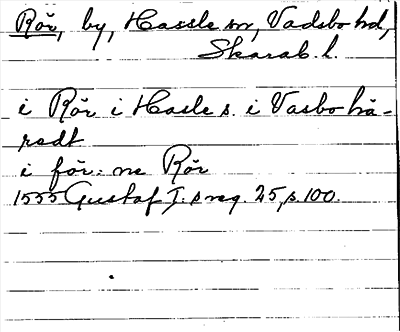 Rör, by, Hassle sn, Vadsbo hd,
Skarab. l.
i Rör i Hasle s. i Vasbo hä-
redt
i för:ne Rör
1555 Gustaf I:s reg. 25, s. 100.